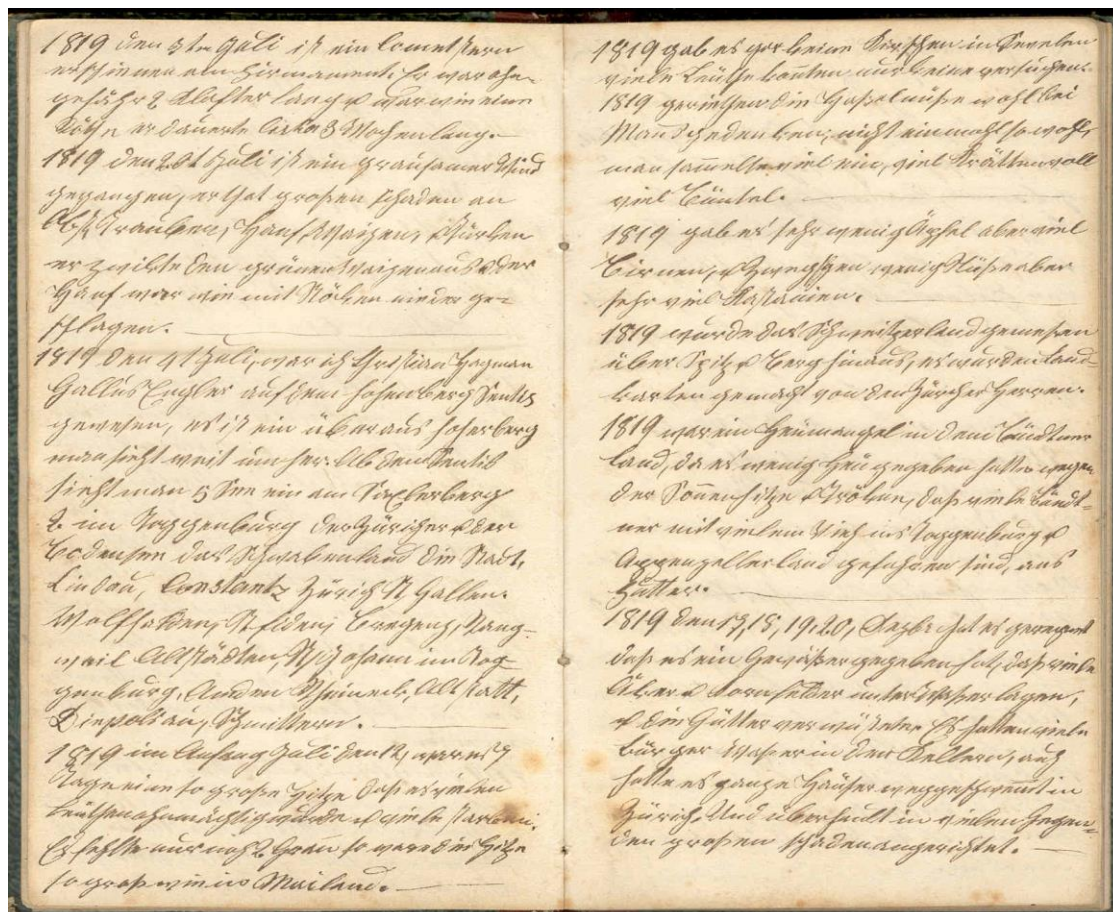 1819 den 3ten Juli ist ein Cometstern
erschienen am Firmament. Er war ohn-
gefähr 2 Klafter lang u war wie eine
Röthe er dauerte circka 3 Wochen lang.
1819 den 20st Juli ist ein grausamer Wind
gegangen, er that großen schaden an
Obst, Trauben, Hanf, Waizen, u Türken
er zwirbte den grünen Waizen aus u der
Hanf war wie mit Stöcken nieder ge-
schlagen.
1819 den 4t Juli, war ich Christian Hagman
Gallus Engler auf dem hohen berg Sentis
gewesen, es ist ein überaus hoher berg
man sieht weit umher. Ab dem Sentis
sieht man 5 See ein am Saxlerberg
2 im Toggenburg der Züricher u der
Bodensee das Schwabenland die Stadt,
Lindau, Constantz Zürich St Gallen.
Wolfhalden, St fiden, Bregenz, Nang-
weil Altstädten, St Johann im Tog-
genburg, Amden Rheineck, Altstatt,
Diepolsau, Schmittern.
1819 im Anfang Juli den 12, war es 7
Tage eine so große Hitze daß es vielen
Leuthen ohnmächtig wurde u viele starben.
Es fehlte nur noch 2 Gran so ware die Hitze
so groß wie in Mailand.
1819 gab es gar keine Kirschen in Sevelen
viele Leuthe konten nur keine versuchen.
1819 geriethen die Haselnüße wohl bei
Mans gedenken, nicht einmahl so wohl,
man samelte viel ein, viel Krätten voll
viel Büntel.
1819 gab es sehr wenig Äpfel aber viel
Birnen, u Zwegsgen wenig Nüße aber
sehr viel Kastanien.
1819 wurde das Schweitzerland gemeßen
über Spitz u Berg hinaus, es wurden Land-
karten gemacht von den Zürcher Herren.
1819 war ein Heümangel in dem Bündtner
land, da es wenig Heü gegeben hatte wegen
der Sonnenhitze u Tröhne, daß viele Bündt-
ner mit vielem Vieh ins Toggenburg u
Appenzellerland gefahren sind, ans
Futter.
1819 den 17, 18, 19, 20, Augst hat es geregnet
daß es ein Gewäßer gegeben hat, daß viele
Äker u Kornfelder unter Waßer lagen,
u die Gütter verwüstete. Es hatten viele
Bürger Waßer in den Kellern, auch
hatte es ganze Häuser weggeschwemt in
Zürich. Und überhaubt in vielen Gegen-
den großen schaden angerichtet.